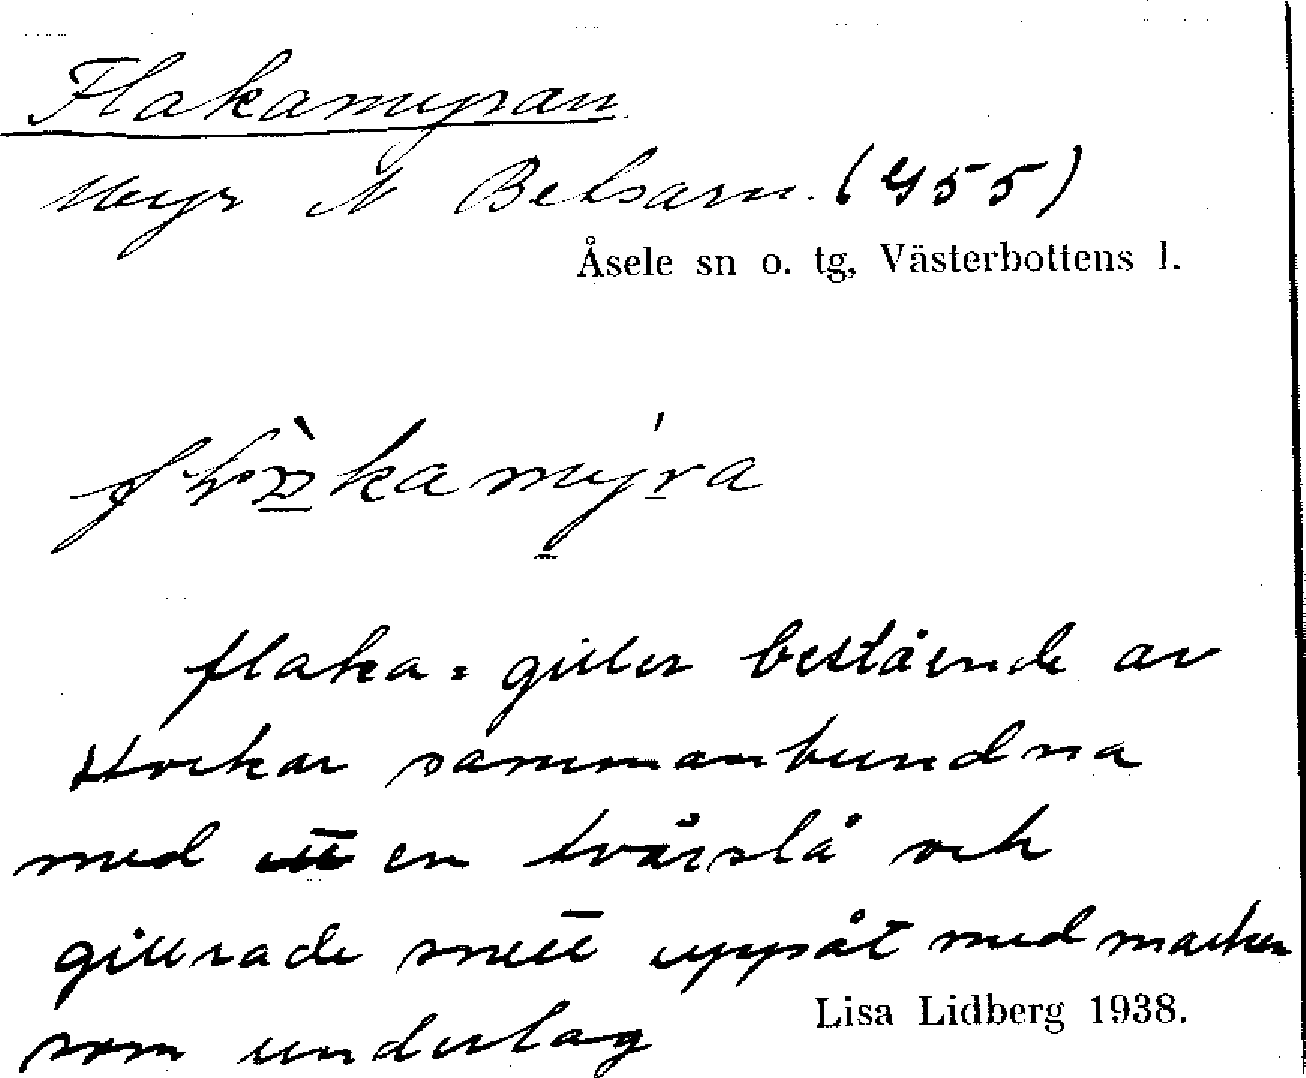 Flakamyran
Myr N Belsarn. (455)
Åsele sn o. tg, Västerbottens l.
flaka = giller bestående av
stockar sammanbundna
med en tvärslå och
gillrade snett uppåt med marken
som underlag
Lisa Lidberg 1938.